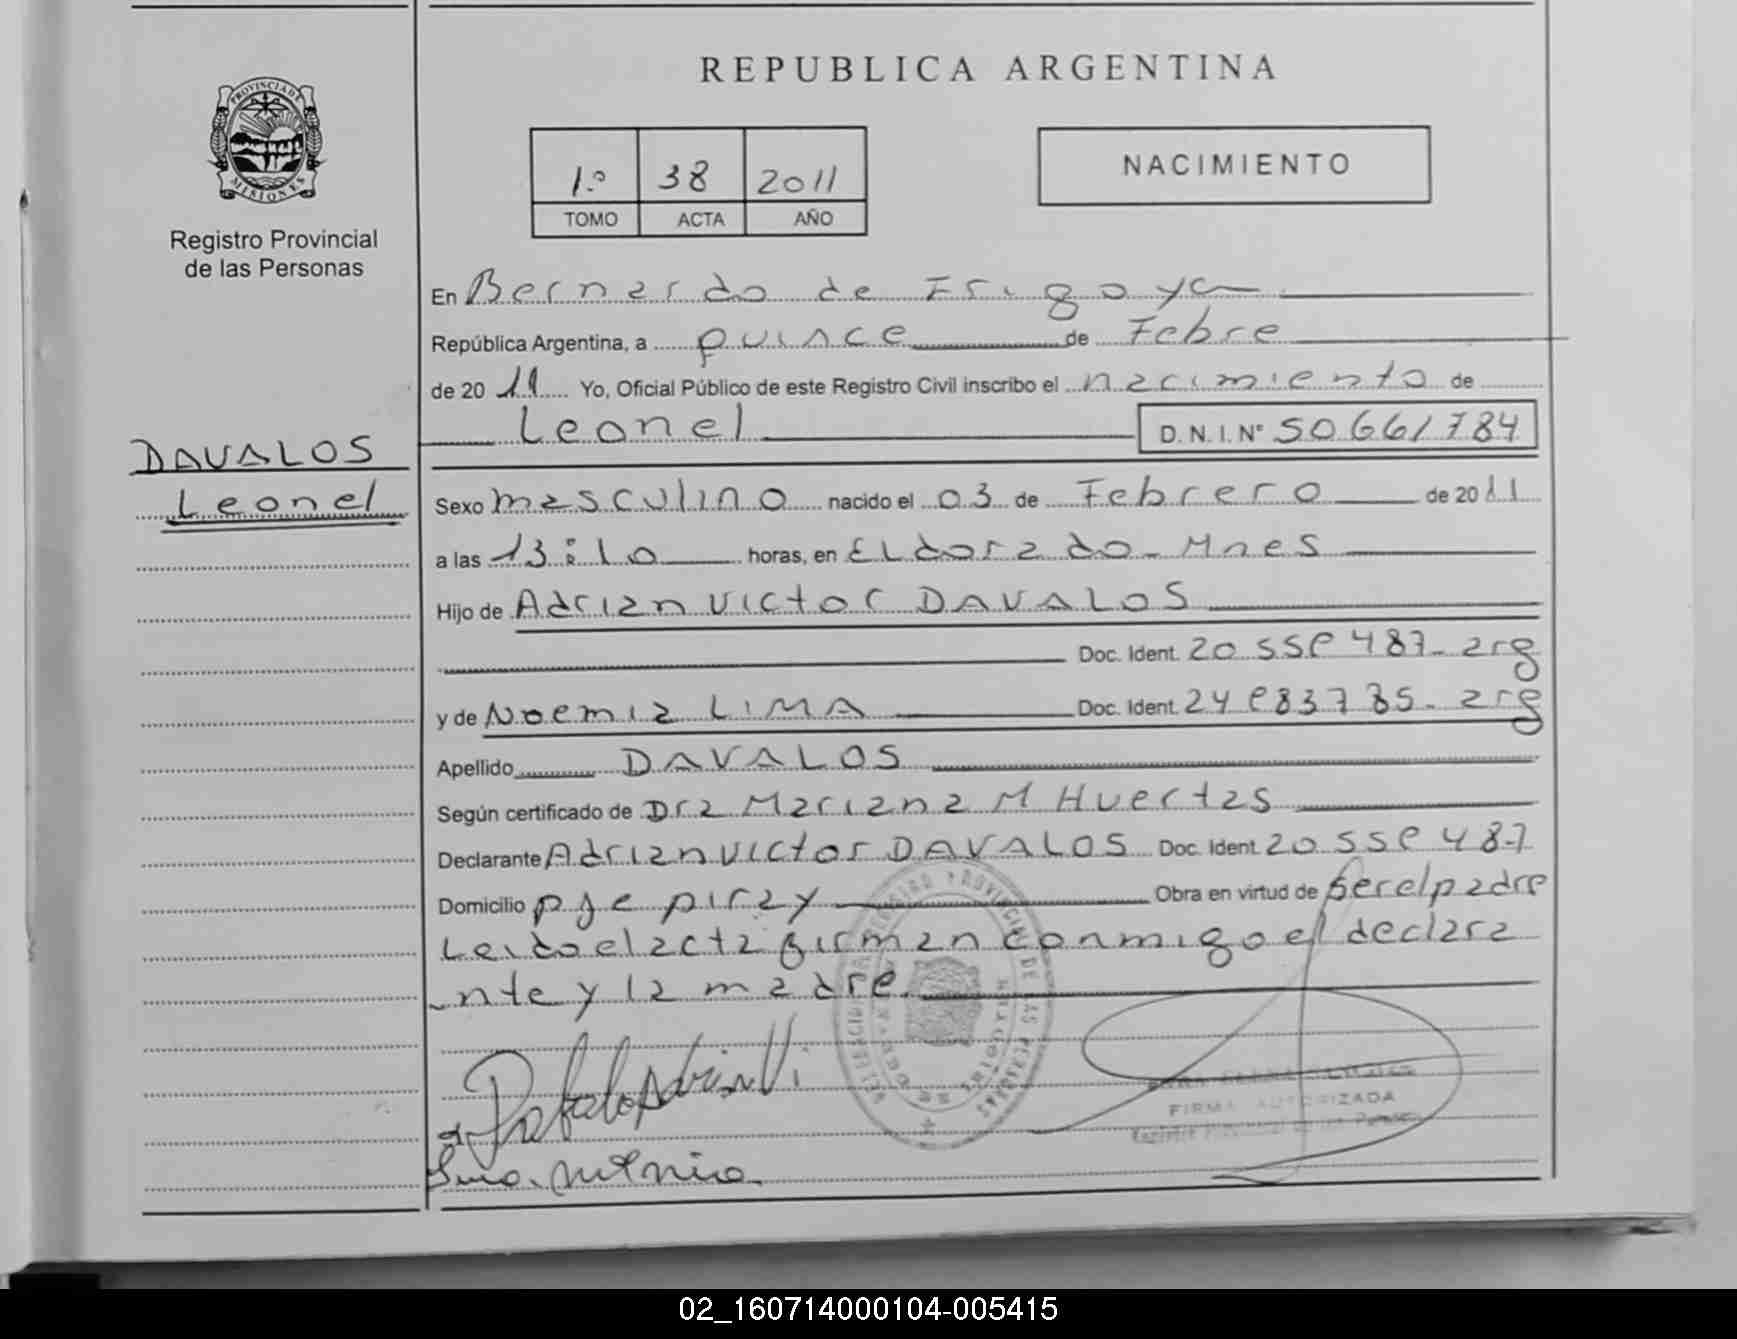 REPUBLICA ARGENTINA
PROVINCIA DE MISIONES
Registro Provincial
de las Personas
1.º 38 2011
TOMO ACTA AÑO
NACIMIENTO
En Bernardo de Irigoyen
República Argentina, a quince de Febre
de 2011 Yo, Oficial Público de este Registro Civil inscribo el nacimiento de
Leonel D.N.I.Nº 50661784
DAVALOS
Leonel
Sexo masculino nacido el 03 de Febrero de 2011
a las 13:10 horas, en Eldorado - Mnes
Hijo de Adrian Victor DAVALOS
Doc. Ident. 20 487 - arg
y de Noemia LIMA Doc. Ident. 24 - arg
Apellido DAVALOS
Según certificado de Dra Mariana M Huertas
Declarante Adrian Victor DAVALOS Doc. Ident. 20 487
Domicilio pje piray Obra en virtud de ser el padre
Leido el acta firman conmigo el declara
nte y la madre.
FIRMA AUTORIZADA
02_160714000104-005415